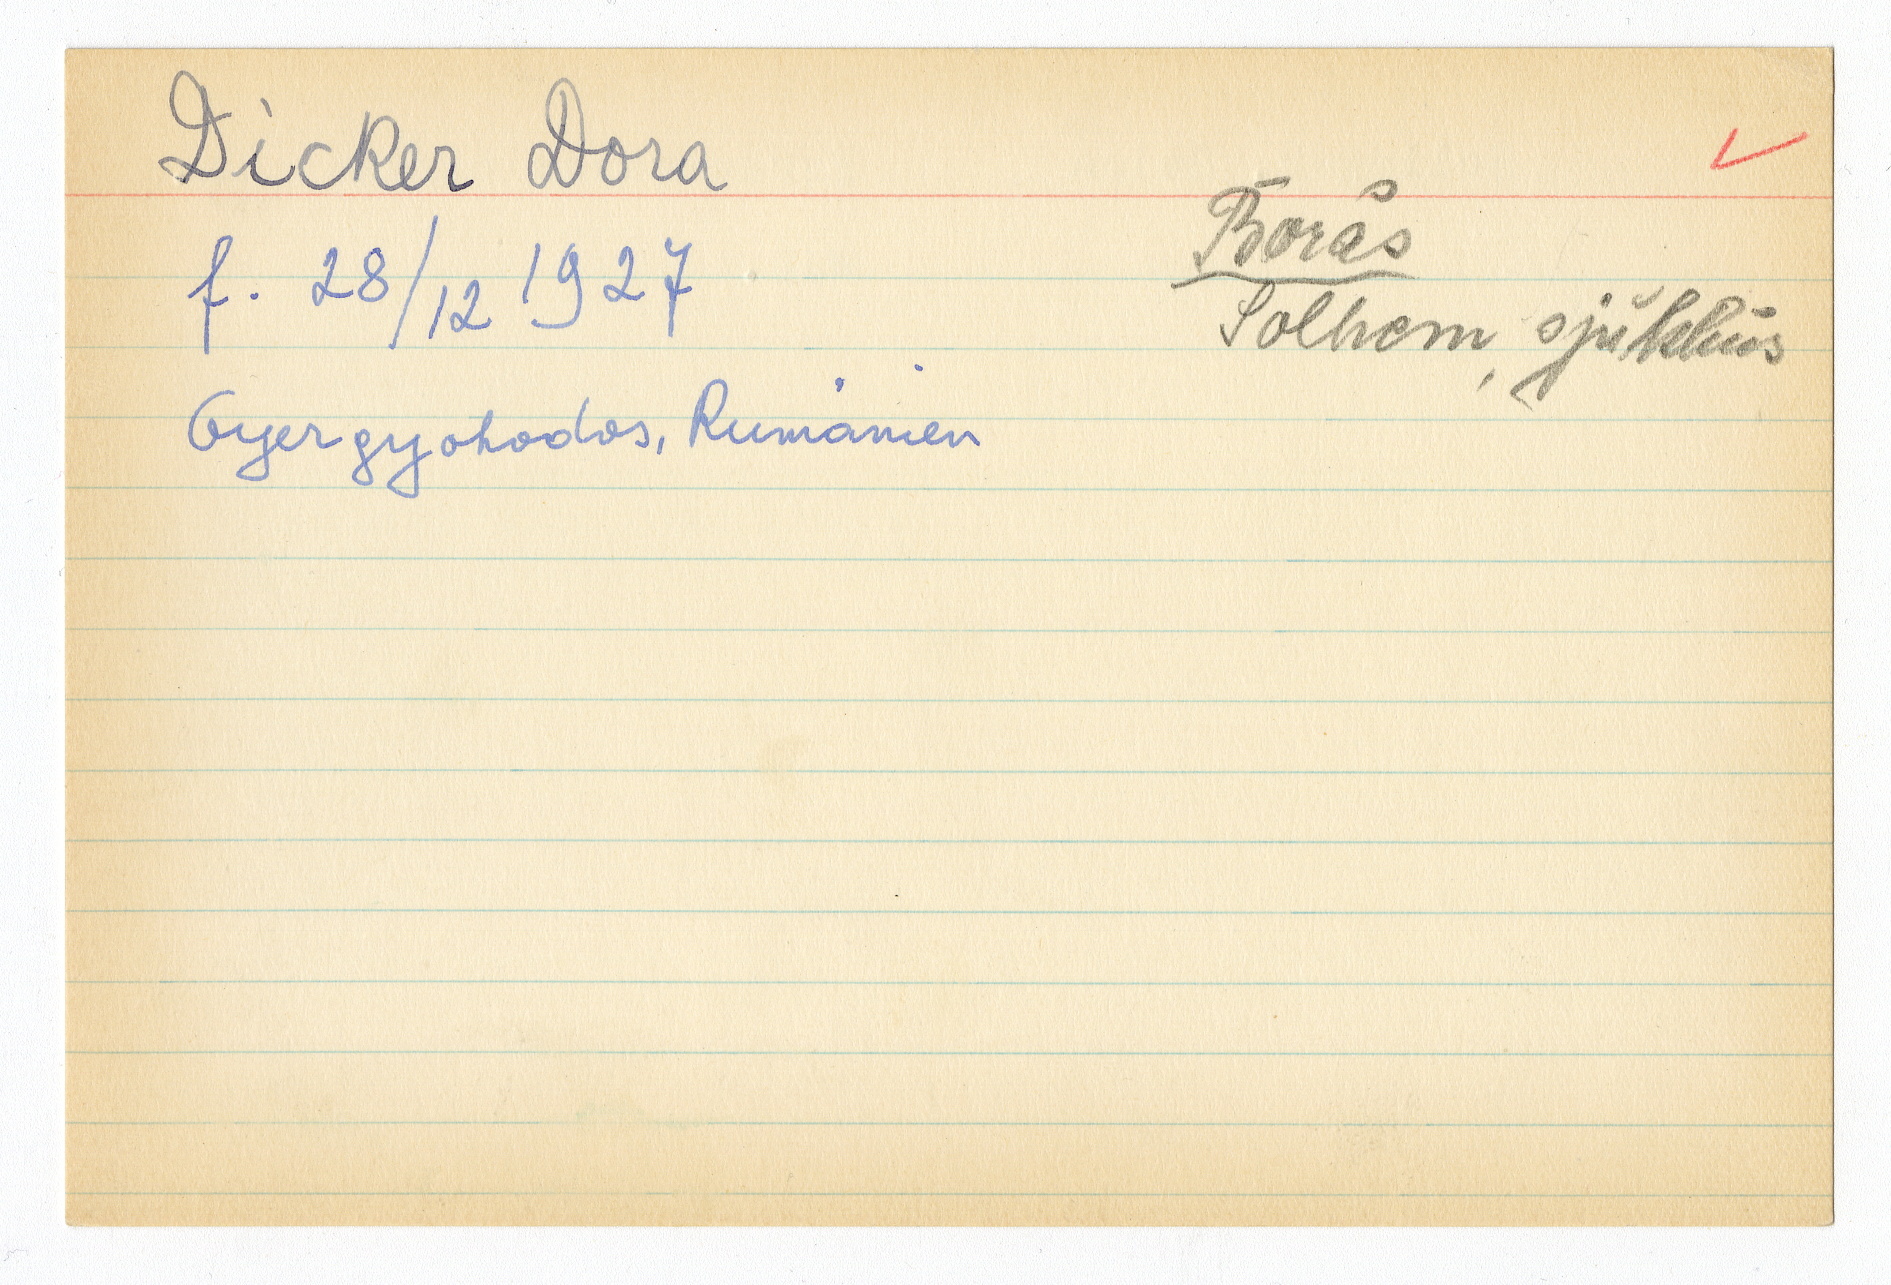 Dicker Dora
f. 28/12 1927
Gyergyohodos, Rumänien
Borås
Solhem, sjukhus